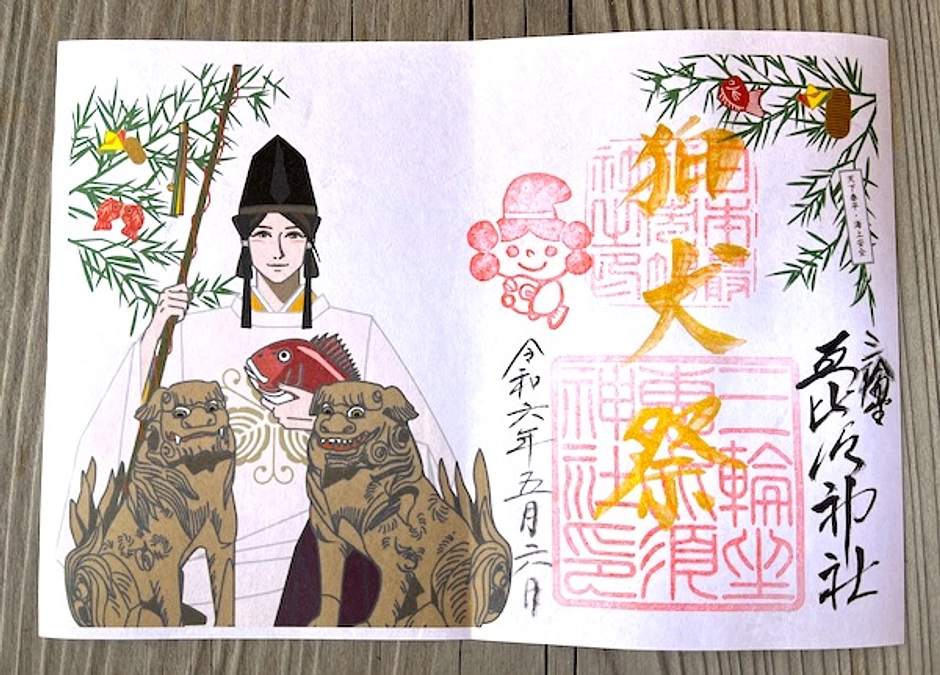 三輪
恵比須神社
天下泰平・海上安全
狛犬祭
三輪坐
恵比須
神社印
令和六年五月六日